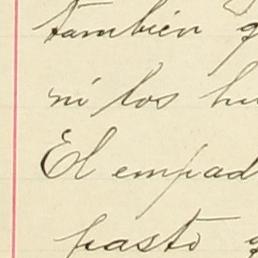 también
ni los
El empad
pasto